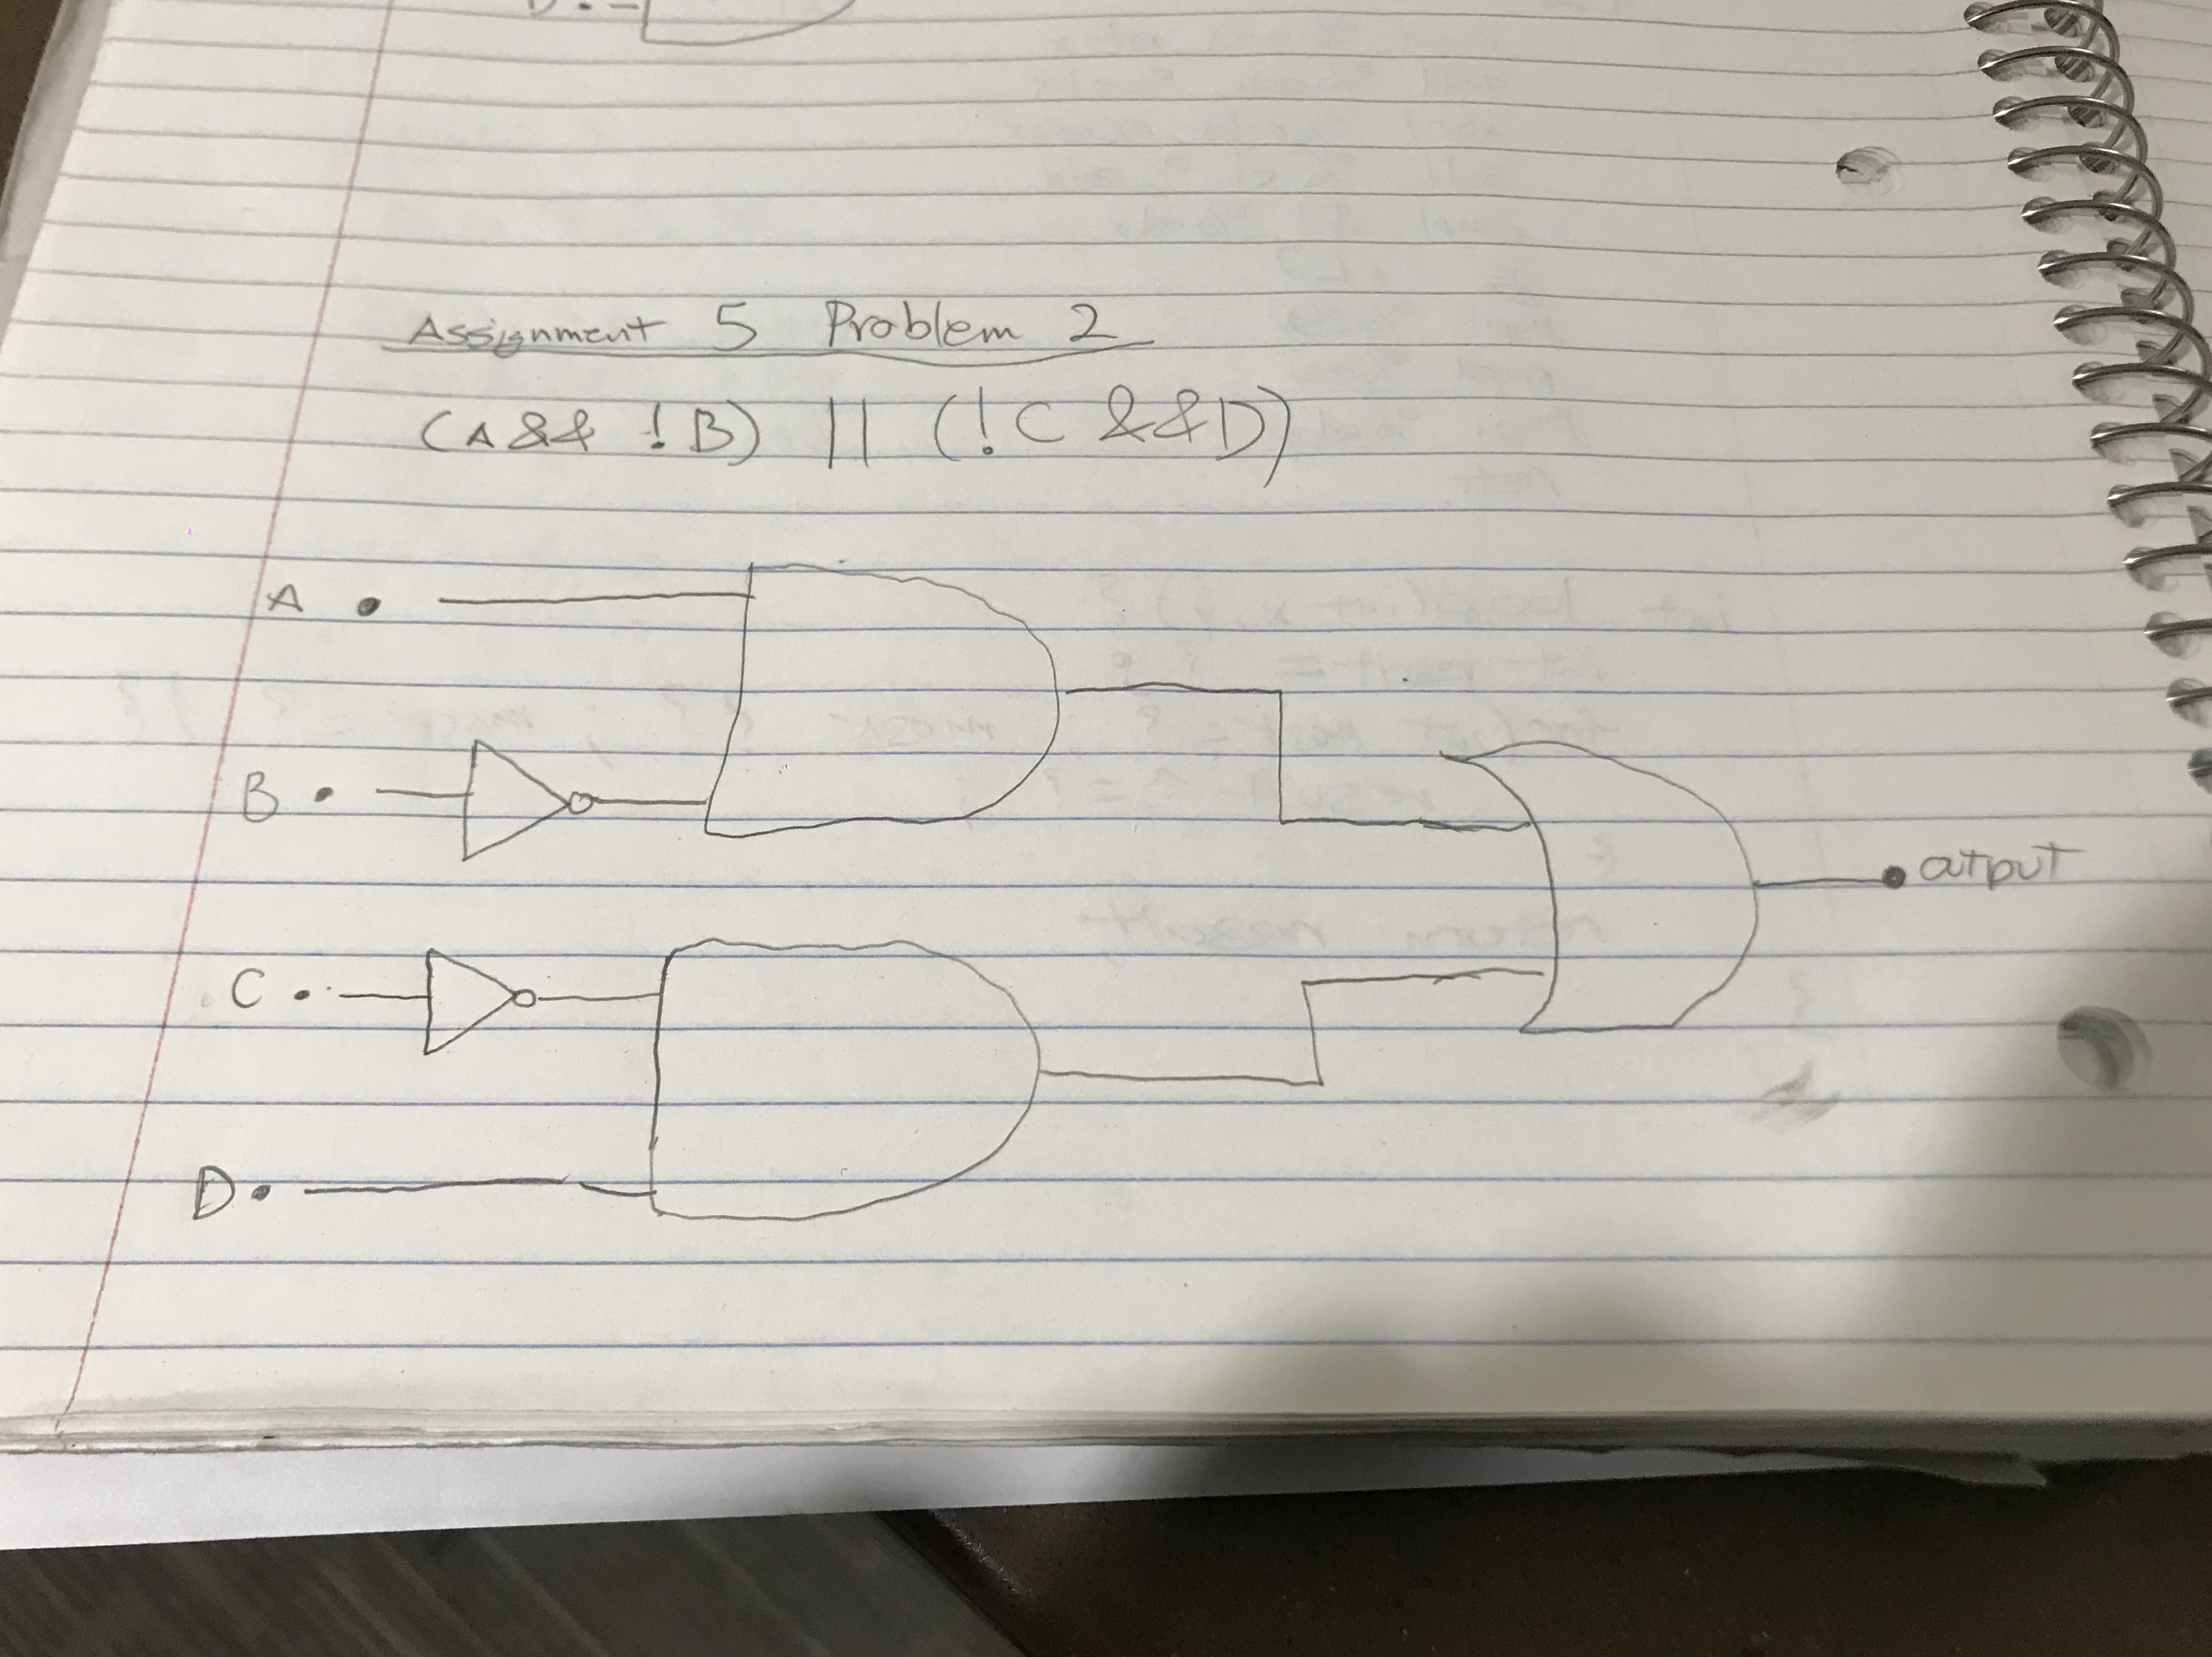 Assignment 5 Problem 2
(A && !B) || (!C && D)
A
B
output
C
D